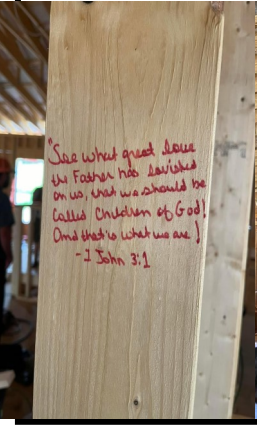 "See what great love
the Father has lavished
on us, that we should be
called children of God!
And that is what we are!
-I John 3:1